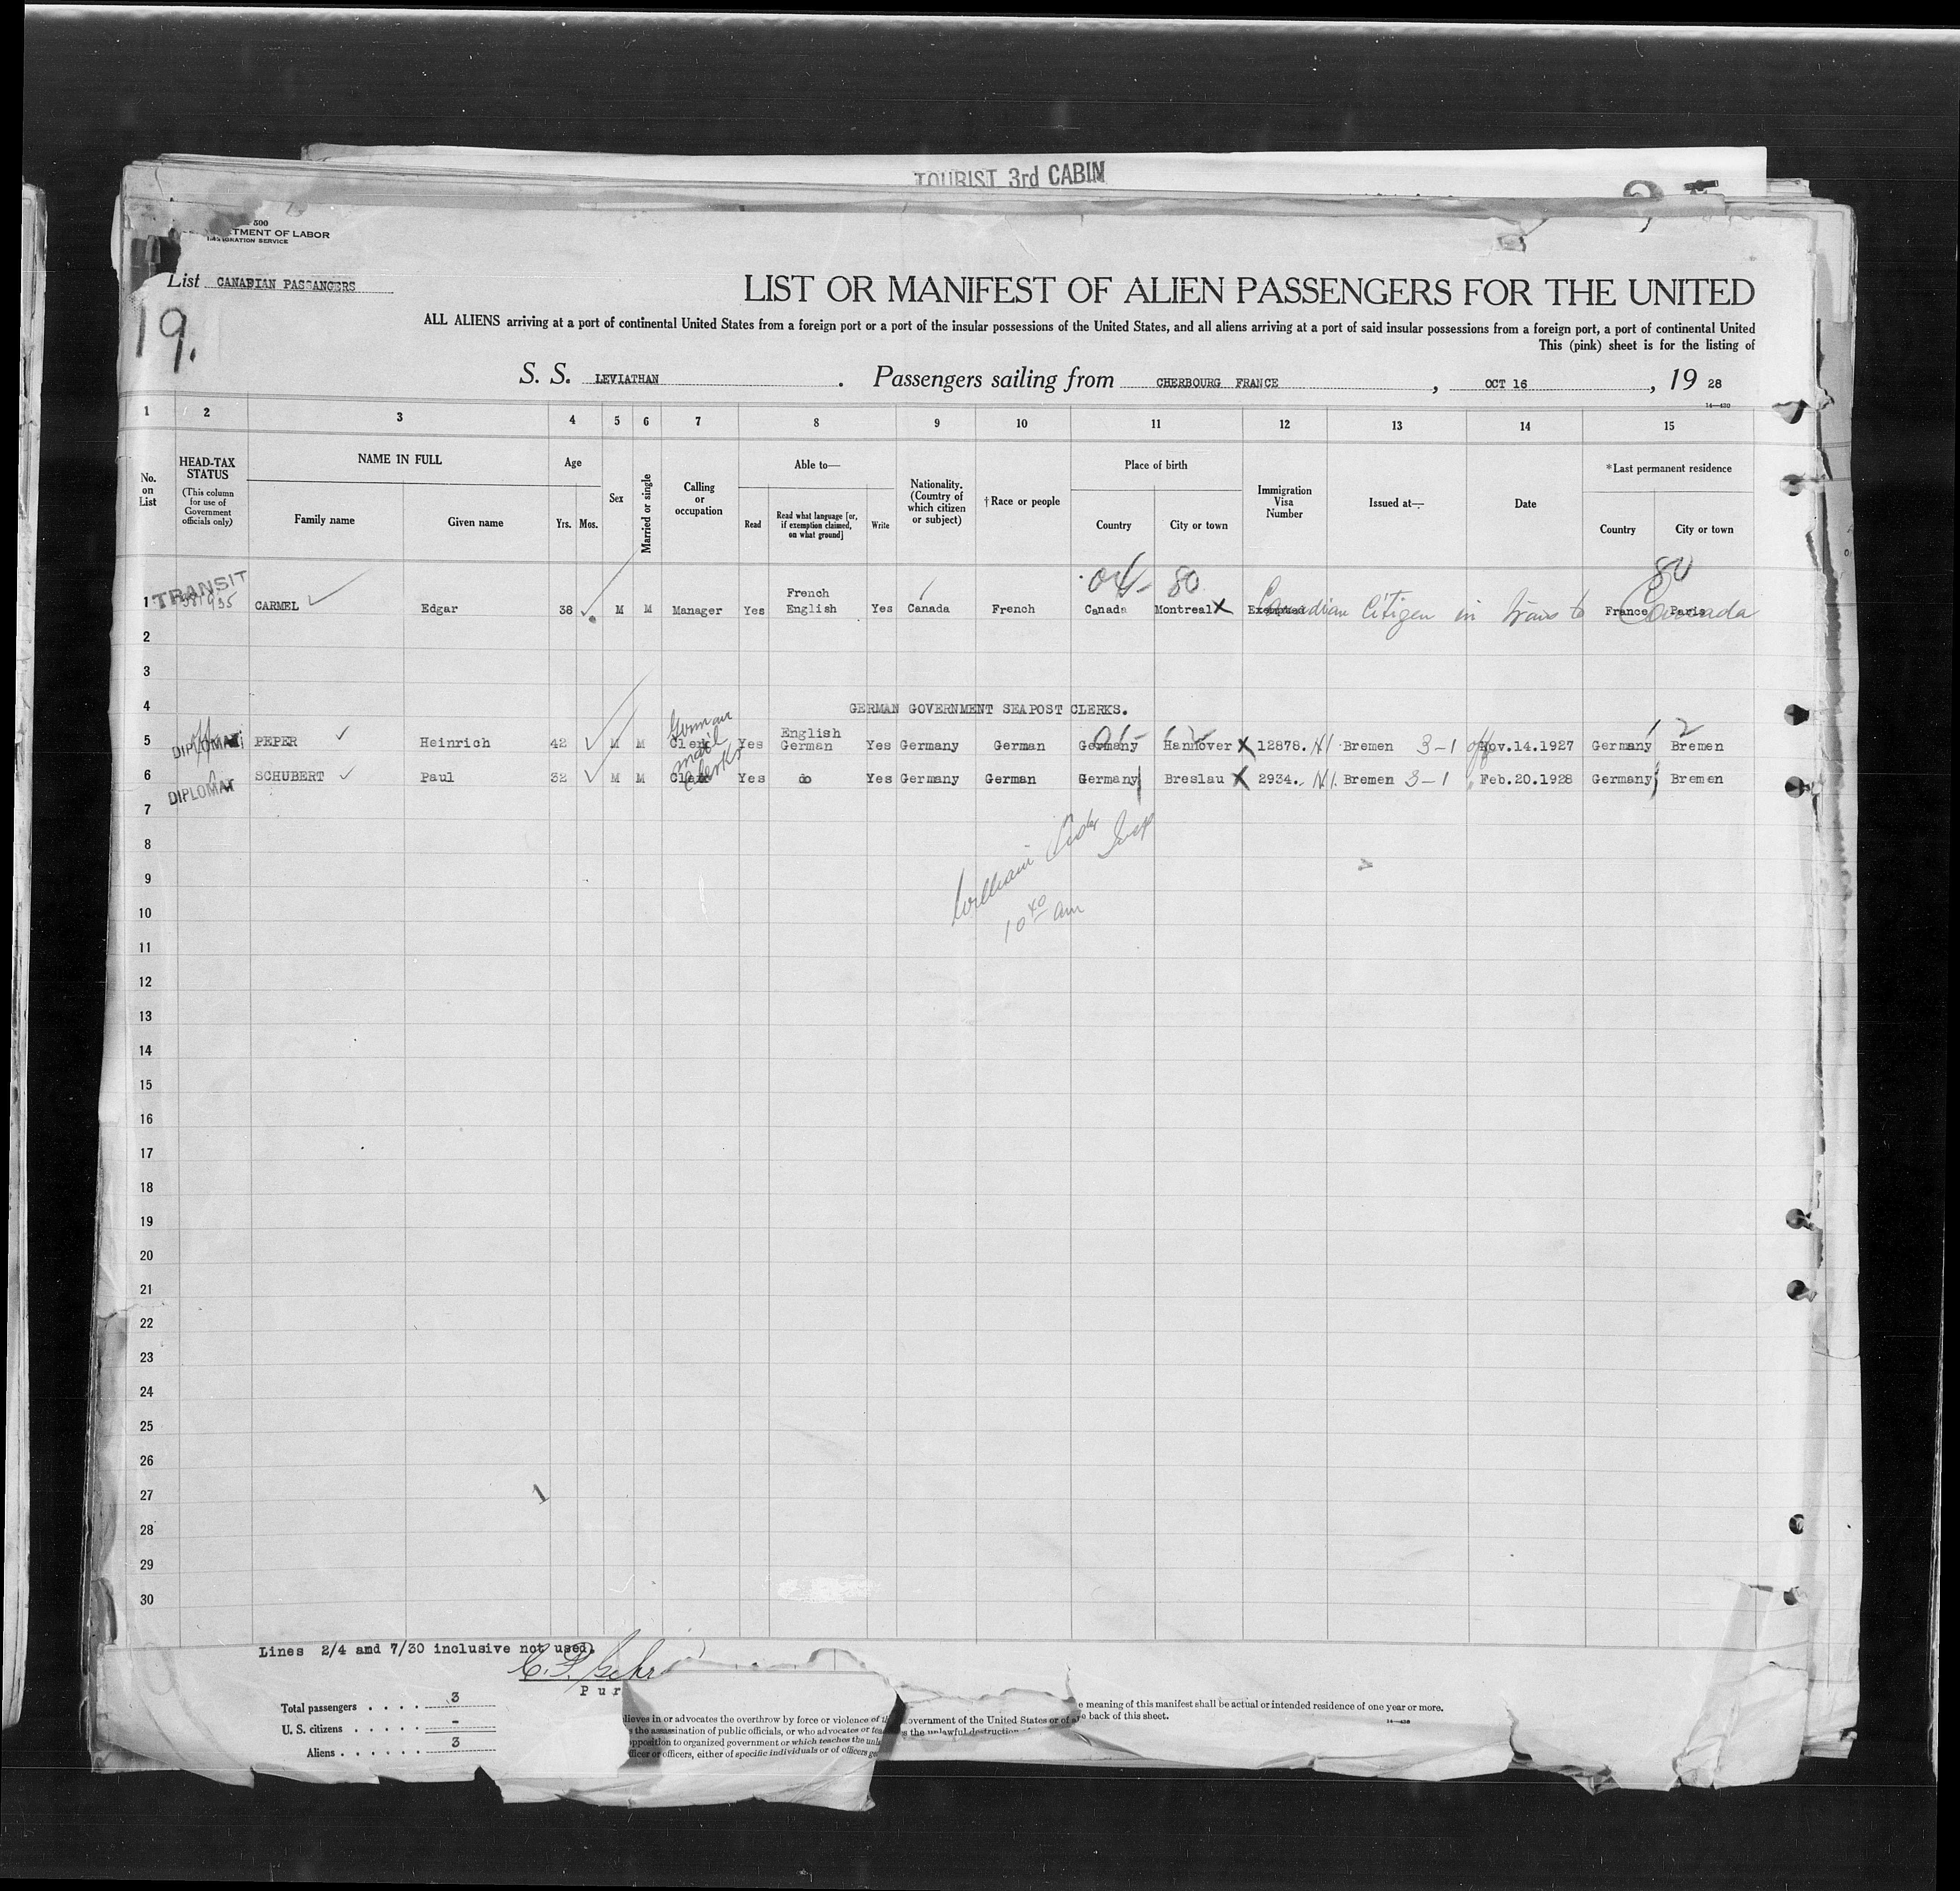 TOURIST 3rd CABIN
500
TMENT OF LABOR
IMMIGRATION SERVICE
List CANADIAN PASSANGERS
19.
LIST OR MANIFEST OF ALIEN PASSENGERS FOR THE UNITED
ALL ALIENS arriving at a port of continental United States from a foreign port or a port of the insular possessions of the United States, and all aliens arriving at a port of said insular possessions from a foreign port, a port of continental United
This (pink) sheet is for the listing of
S. S. LEVIATHAN . Passengers sailing from CHERBOURG FRANCE , OCT 16 , 19 28
14—430
1 2 3 4 5 6 7 8 9 10 11 12 13 14 15
No. on List
HEAD-TAX STATUS
(This column for use of Government officials only)
NAME IN FULL
Family name
Given name
Age
Yrs. Mos.
Sex
Married or single
Calling or occupation
Able to—
Read
Read what language [or, if exemption claimed, on what ground]
Write
Nationality. (Country of which citizen or subject)
†Race or people
Place of birth
Country
City or town
Immigration Visa Number
Issued at—
Date
*Last permanent residence
Country
City or town
80 80
TRANSIT
French
1 CARMEL Edgar 38 M M Manager Yes English Yes Canada French Canada Montreal X Exempted Canadian Citizen in trans to France Paris Canada
2
3
4 GERMAN GOVERNMENT SEAPOST CLERKS.
German mail clerks
English
5 DIPLOMAT PEPER Heinrich 42 M M Clerk Yes German Yes Germany German Germany Hannover X 12878. Bremen 3-1 Nov.14.1927 Germany Bremen
6 SCHUBERT Paul 32 M M Clerk Yes do Yes Germany German Germany Breslau X 2934. Bremen 3-1 Feb.20.1928 Germany Bremen
DIPLOMAT
7
8
9
William Insp
10
10 40 am
11
12
13
14
15
16
17
18
19
20
21
22
23
24
25
26
27
28
29
30
Lines 2/4 and 7/30 inclusive not used.
Pur
Total passengers . . . . . 3
U. S. citizens . . . . . -
Aliens . . . . . . 3
lieves in or advocates the overthrow by force or violence of the
the assassination of public officials, or who advocates or
opposition to organized government or which teaches the
officer or officers, either of specific individuals or of officers
overnment of the United States or of
the unlawful destruction
e meaning of this manifest shall be actual or intended residence of one year or more.
e back of this sheet.
14—430